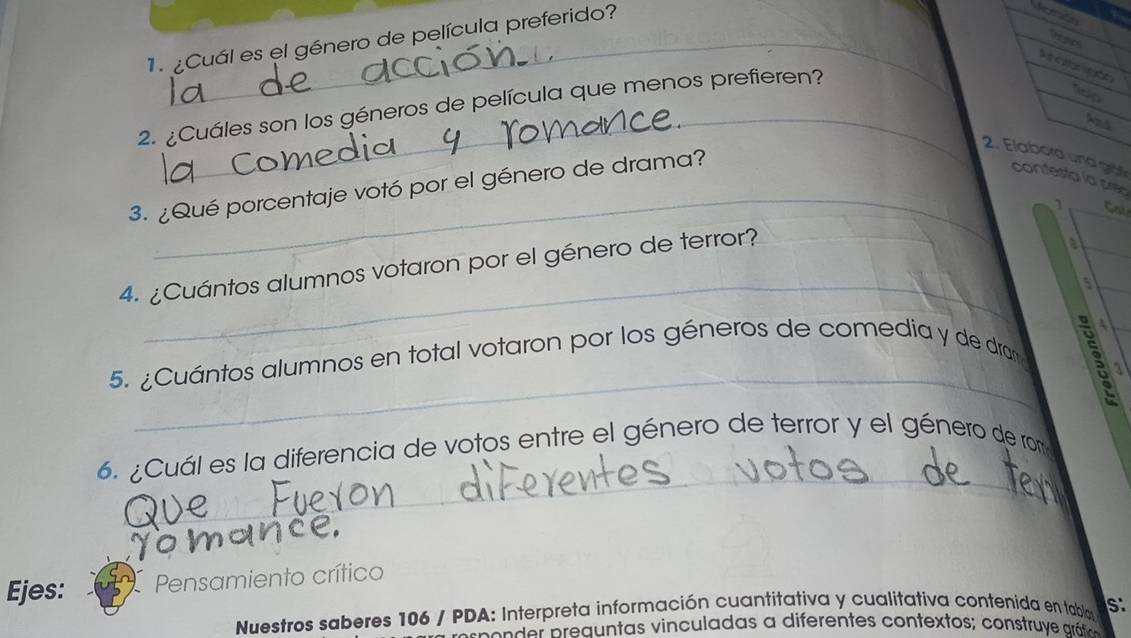 1. ¿Cuál es el género de película preferido?
la de acción.
2. ¿Cuáles son los géneros de película que menos prefieren?
la comedia y romance.
3. ¿Qué porcentaje votó por el género de drama?
4. ¿Cuántos alumnos votaron por el género de terror?
5. ¿Cuántos alumnos en total votaron por los géneros de comedia y de dram
6. ¿Cuál es la diferencia de votos entre el género de terror y el género de rom
Que Fueron diferentes votos de terr
romance.
Ejes:
Pensamiento crítico
Nuestros saberes 106 / PDA: Interpreta información cuantitativa y cualitativa contenida en tabla
s:
responder preguntas vinculadas a diferentes contextos; construye gráfic
Anaranjado
Rojo
Azul
2. Elabora una gráfic
contesta la preg
7
6
5
4
3
Frecuencia